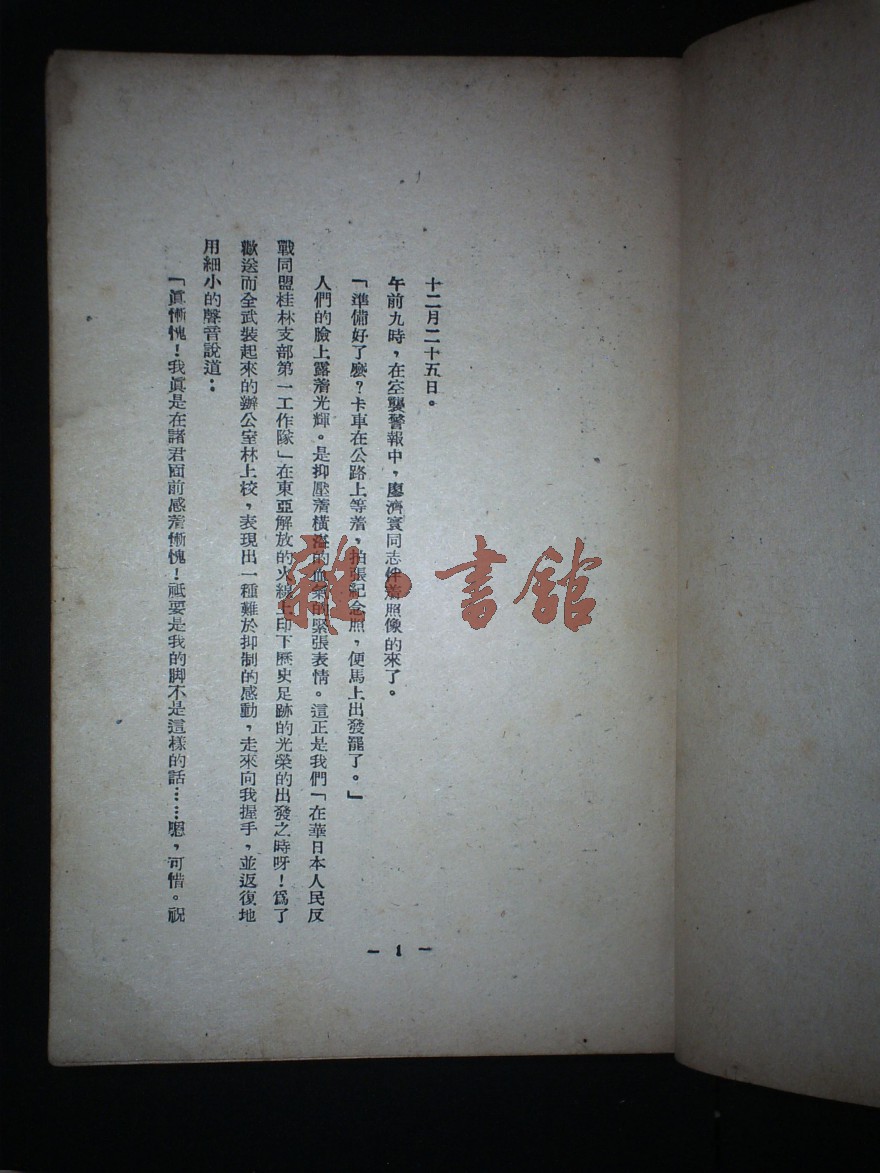 十二月二十五日。
午前九時，在空襲警報中，廖濟寰同志伴着照像的來了。
「準備好了麽？卡車在公路上等着，拍張紀念照，便馬上出發罷了。」
人們的臉上露着光輝。是抑壓着橫溢的血氣的緊張表情。這正是我們「在華日本人民反
戰同盟桂林支部第一工作隊」在東亞解放的火線上印下歷史足跡的光榮的出發之時呀！爲了
歡送而全武裝起來的辦公室林上校，表現出一種難於抑制的感動，走來向我握手，並返復地
用細小的聲音說道：
「眞慚愧！我眞是在諸君面前感着慚愧！祇要是我的脚不是這樣的話……嗯，可惜。祝
— 1 —
雜·書館